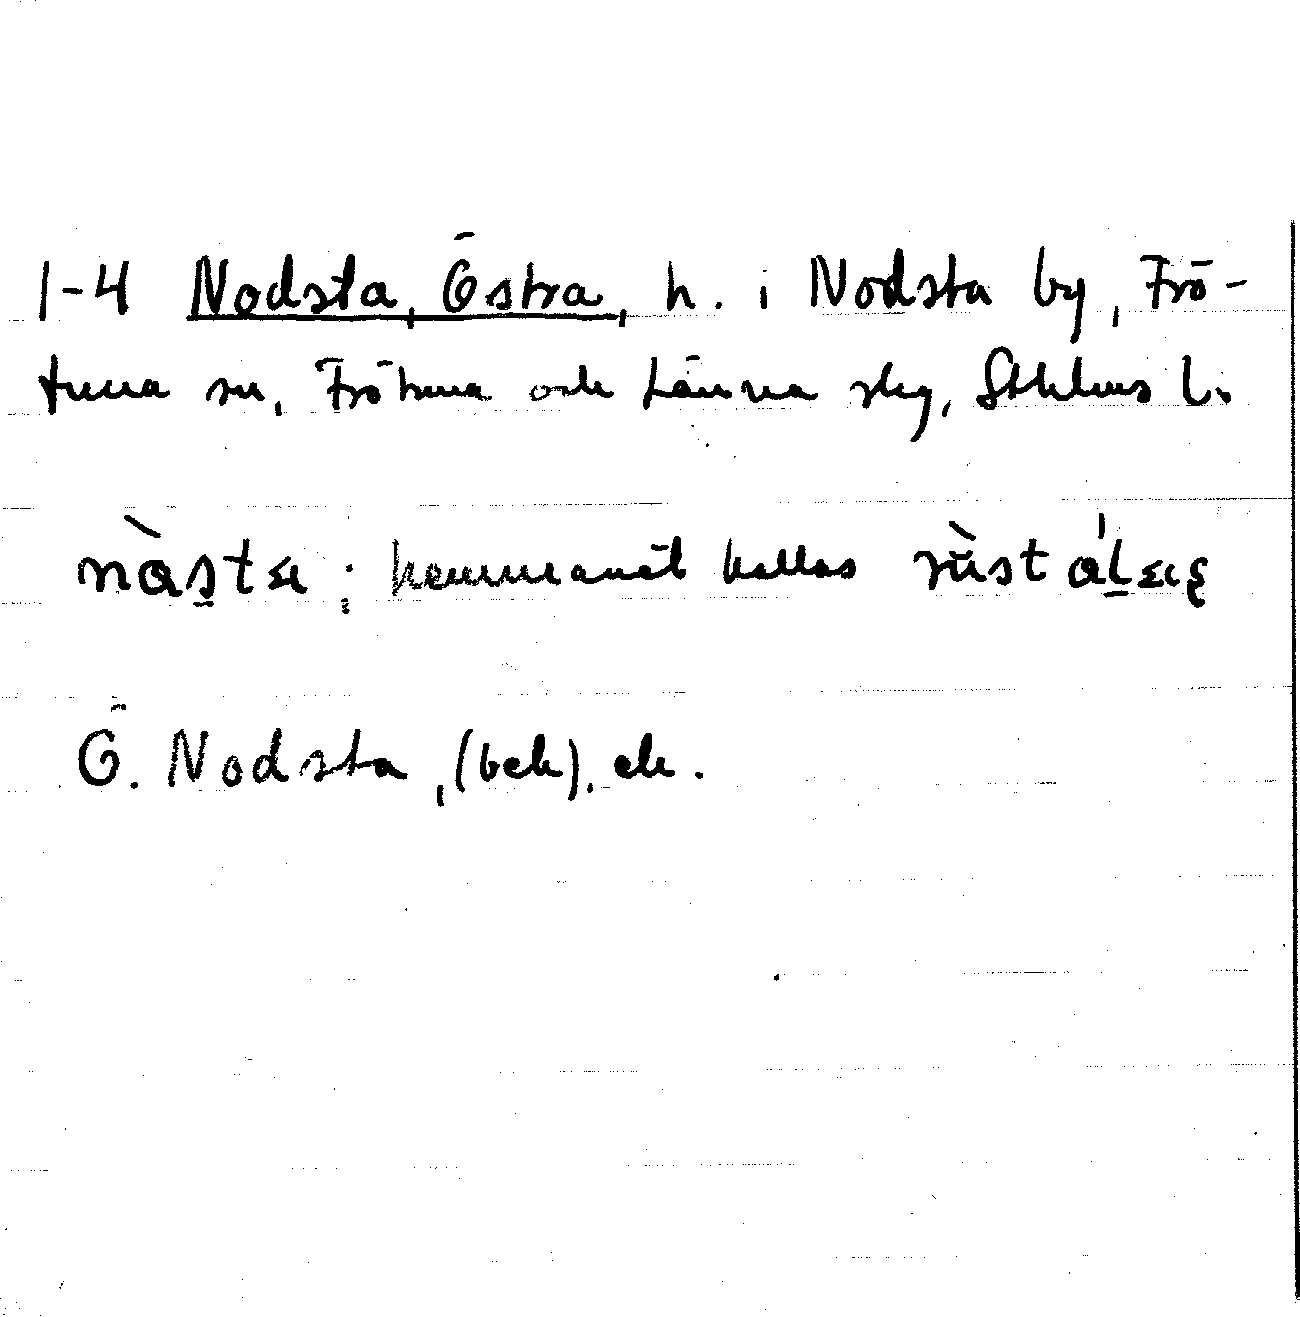 1-4 Nodsta, Östra, h. i Nodsta by, Frö-
tuna sn, Frötuna och Länna slg, Sthlms l.
nàs̱ta ; hemmanet kallas
Ö. Nodsta, (bek), ek.